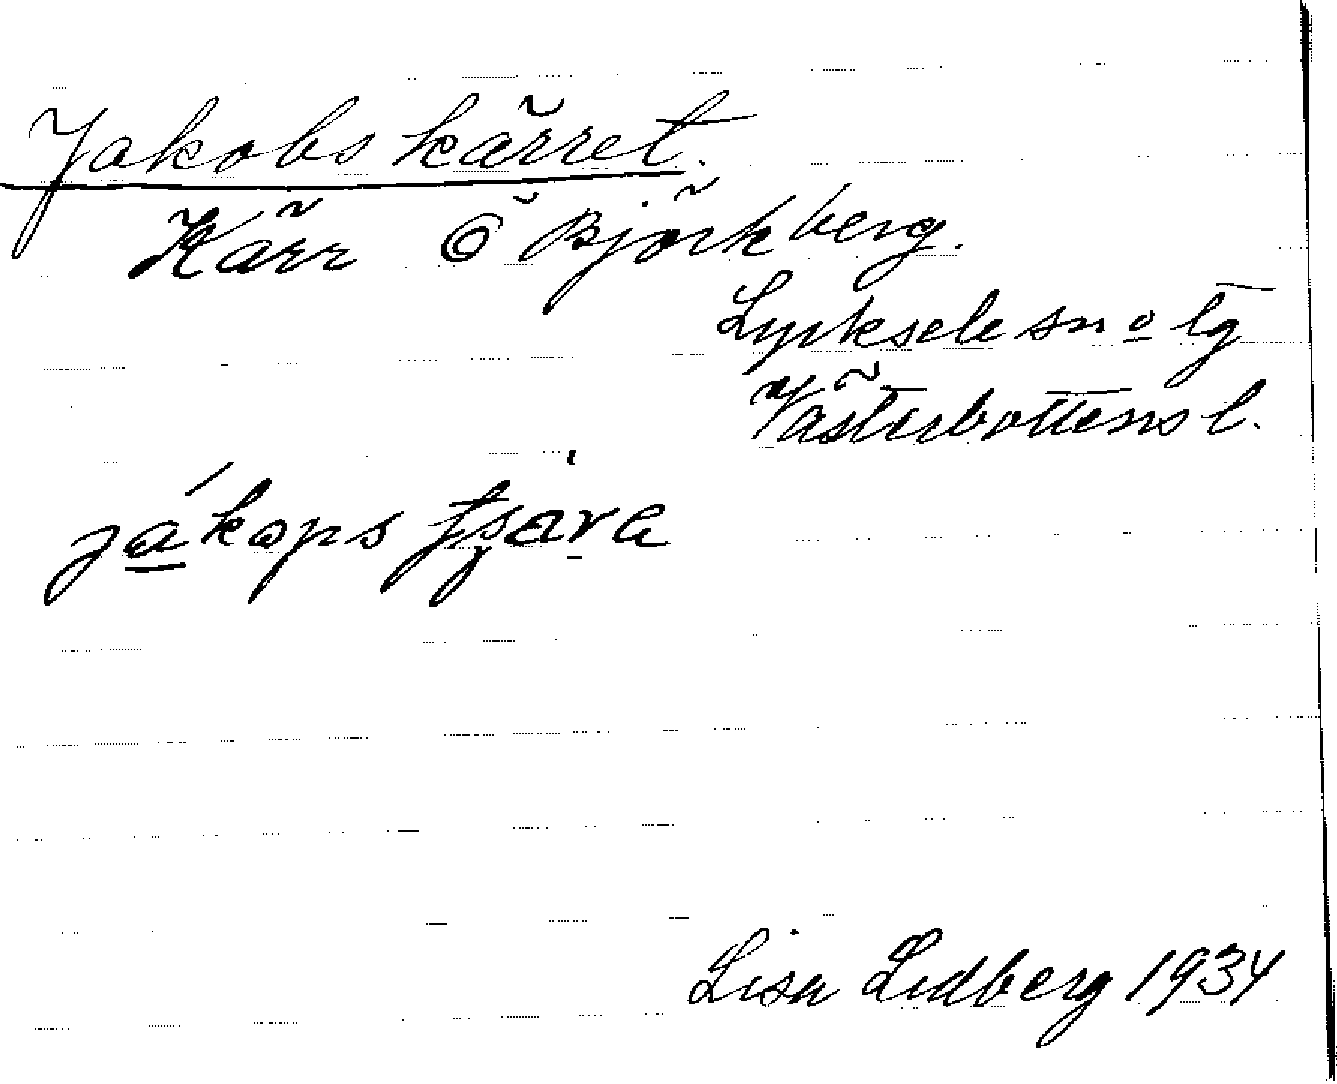 Jakobskärret.
Kärr Ö Björkberg.
Lycksele sn o lg
Västerbottens l.
jákops
Lisa Lidberg 1934